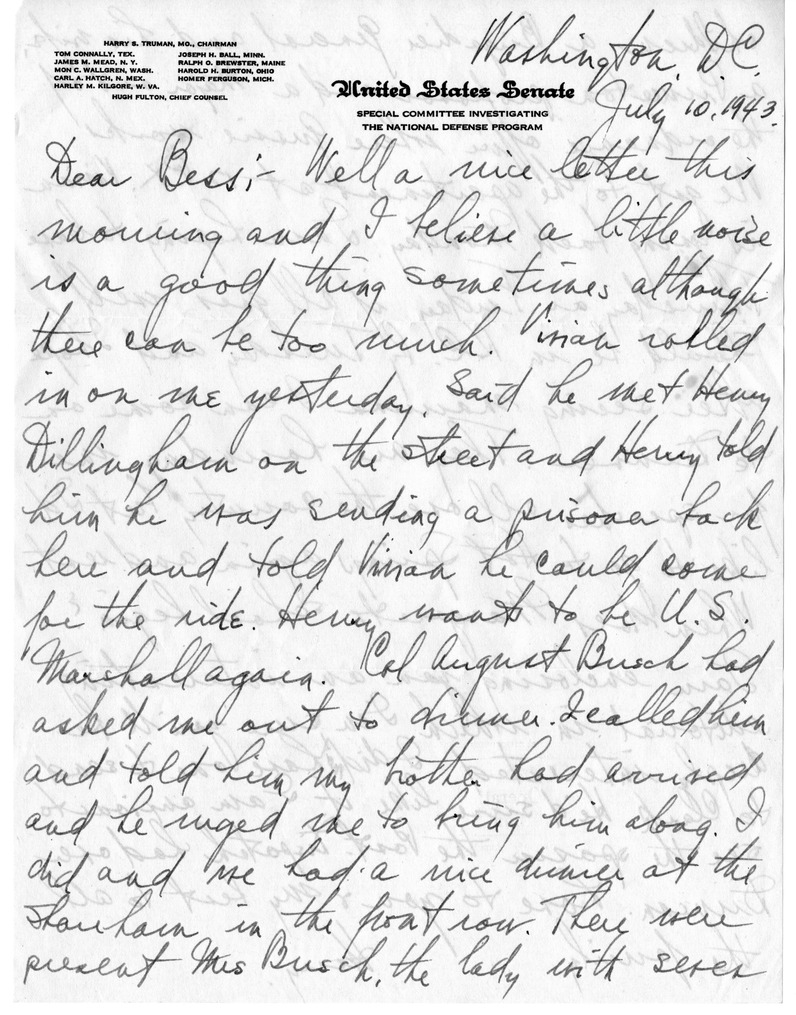 HARRY S. TRUMAN, MO., CHAIRMAN
TOM CONNALLY, TEX. JOSEPH H. BALL, MINN.
JAMES M. MEAD, N. Y. RALPH O. BREWSTER, MAINE
MON C. WALLGREN, WASH. HAROLD H. BURTON, OHIO
CARL A. HATCH, N. MEX. HOMER FERGUSON, MICH.
HARLEY M. KILGORE, W. VA.
HUGH FULTON, CHIEF COUNSEL
United States Senate
SPECIAL COMMITTEE INVESTIGATING
THE NATIONAL DEFENSE PROGRAM
Washington, D.C.
July 10, 1943.
Dear Bess;- Well a nice letter this
morning and I believe a little noise
is a good thing sometimes although
there can be too much. Vivian rolled
in on me yesterday. Said he met Henry
Dillingham on the street and Henry told
him he was sending a prisoner back
here and told Vivian he could come
for the ride. Henry wants to be U.S.
Marshall again. Col August Busch had
asked me out to dinner. I called him
and told him my brother had arrived
and he urged me to bring him along. I
did and we had a nice dinner at the
Shoreham in the front row. There were
present Mrs Busch, the lady with seven